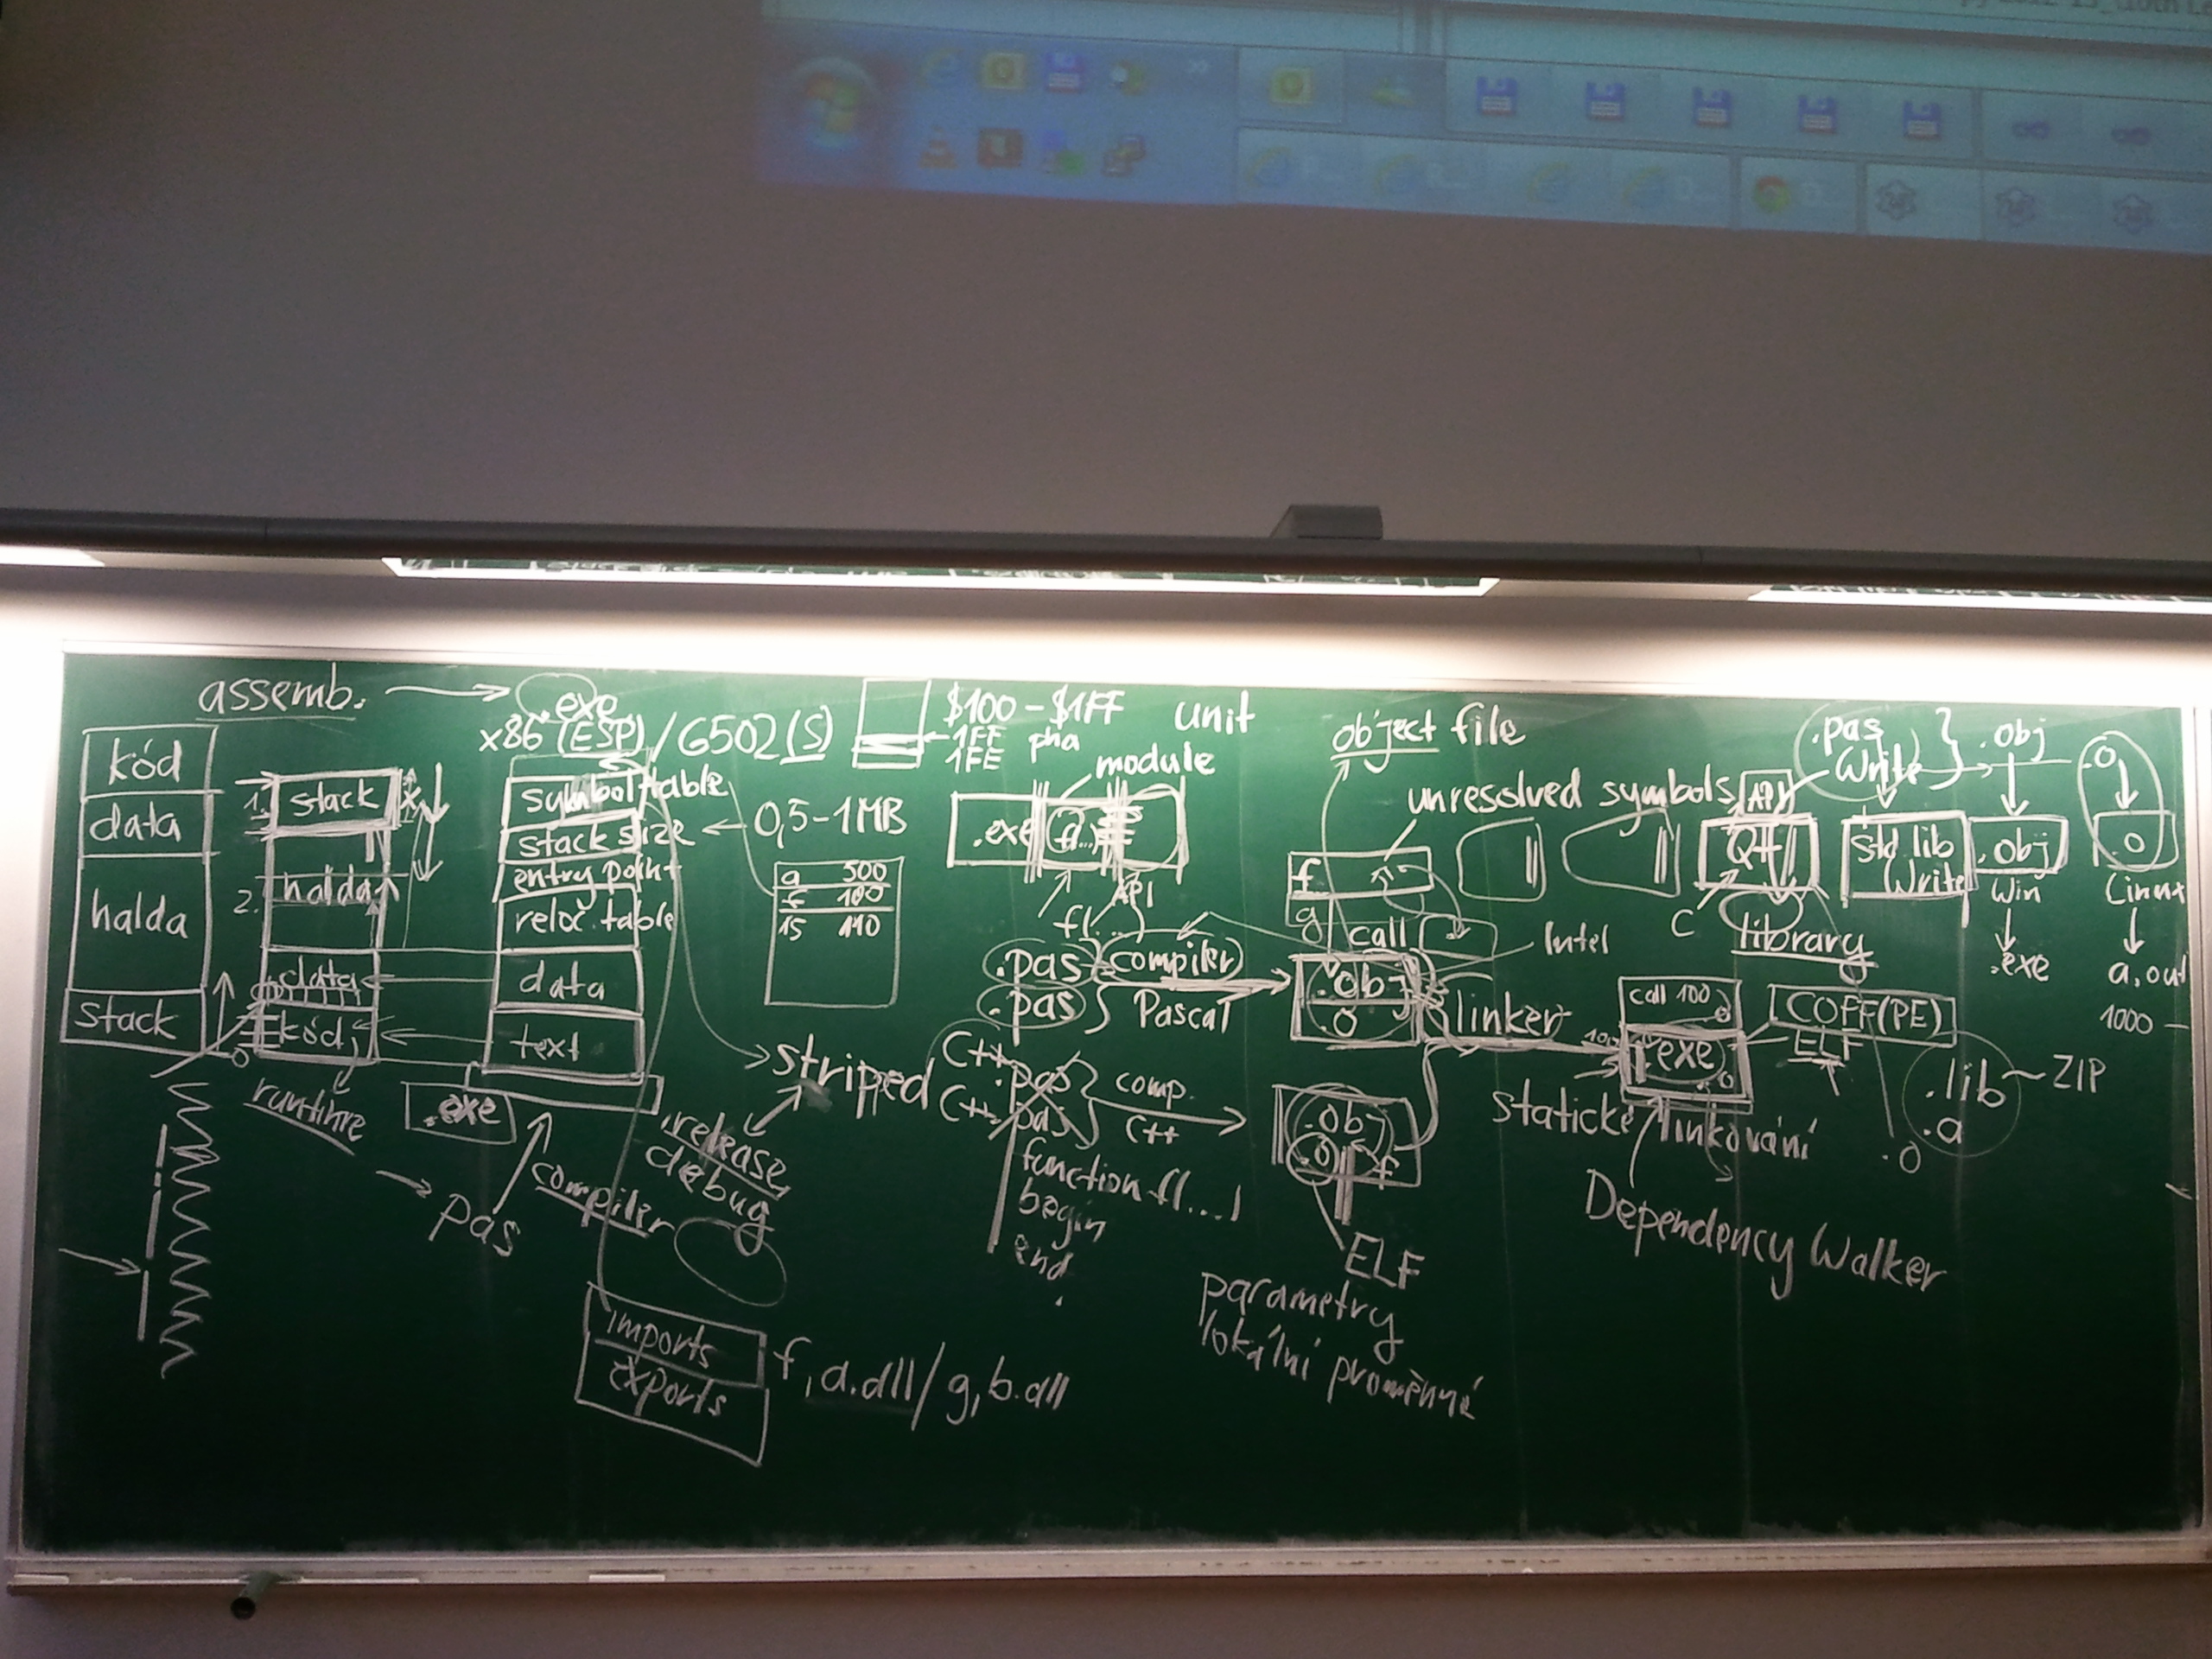 assemb.
.exe
x86 (ESP) / 6502 (S)
kód
data
halda
stack
1.
stack
x
2.
halda
data
kód
0
runtime
symbol table
stack size
entry point
reloc. table
data
text
.exe
0,5-1MB
a 500
f 100
15 110
$100 - $1FF
1FF pha
1FE
unit
module
.exe
f(...)
API
f(...)
.pas
.pas
compiler
Pascal
striped
release
debug
pas
compiler
imports
exports
f, a.dll / g, b.dll
C++
C++
.pas
.pas
comp.
C++
function f(...)
begin
end
object file
unresolved symbols
f
g
call
Intel
.obj
.o
linker
.obj
.o
f
ELF
parametry
lokální proměnné
.pas
Write
API
Qt
C
library
std lib
Write
.obj
.obj
Win
.exe
.o
.o
Linux
a.out
1000
call 100
exe
statické linkování
COFF(PE)
ELF
.lib
.a
ZIP
.o
Dependency Walker